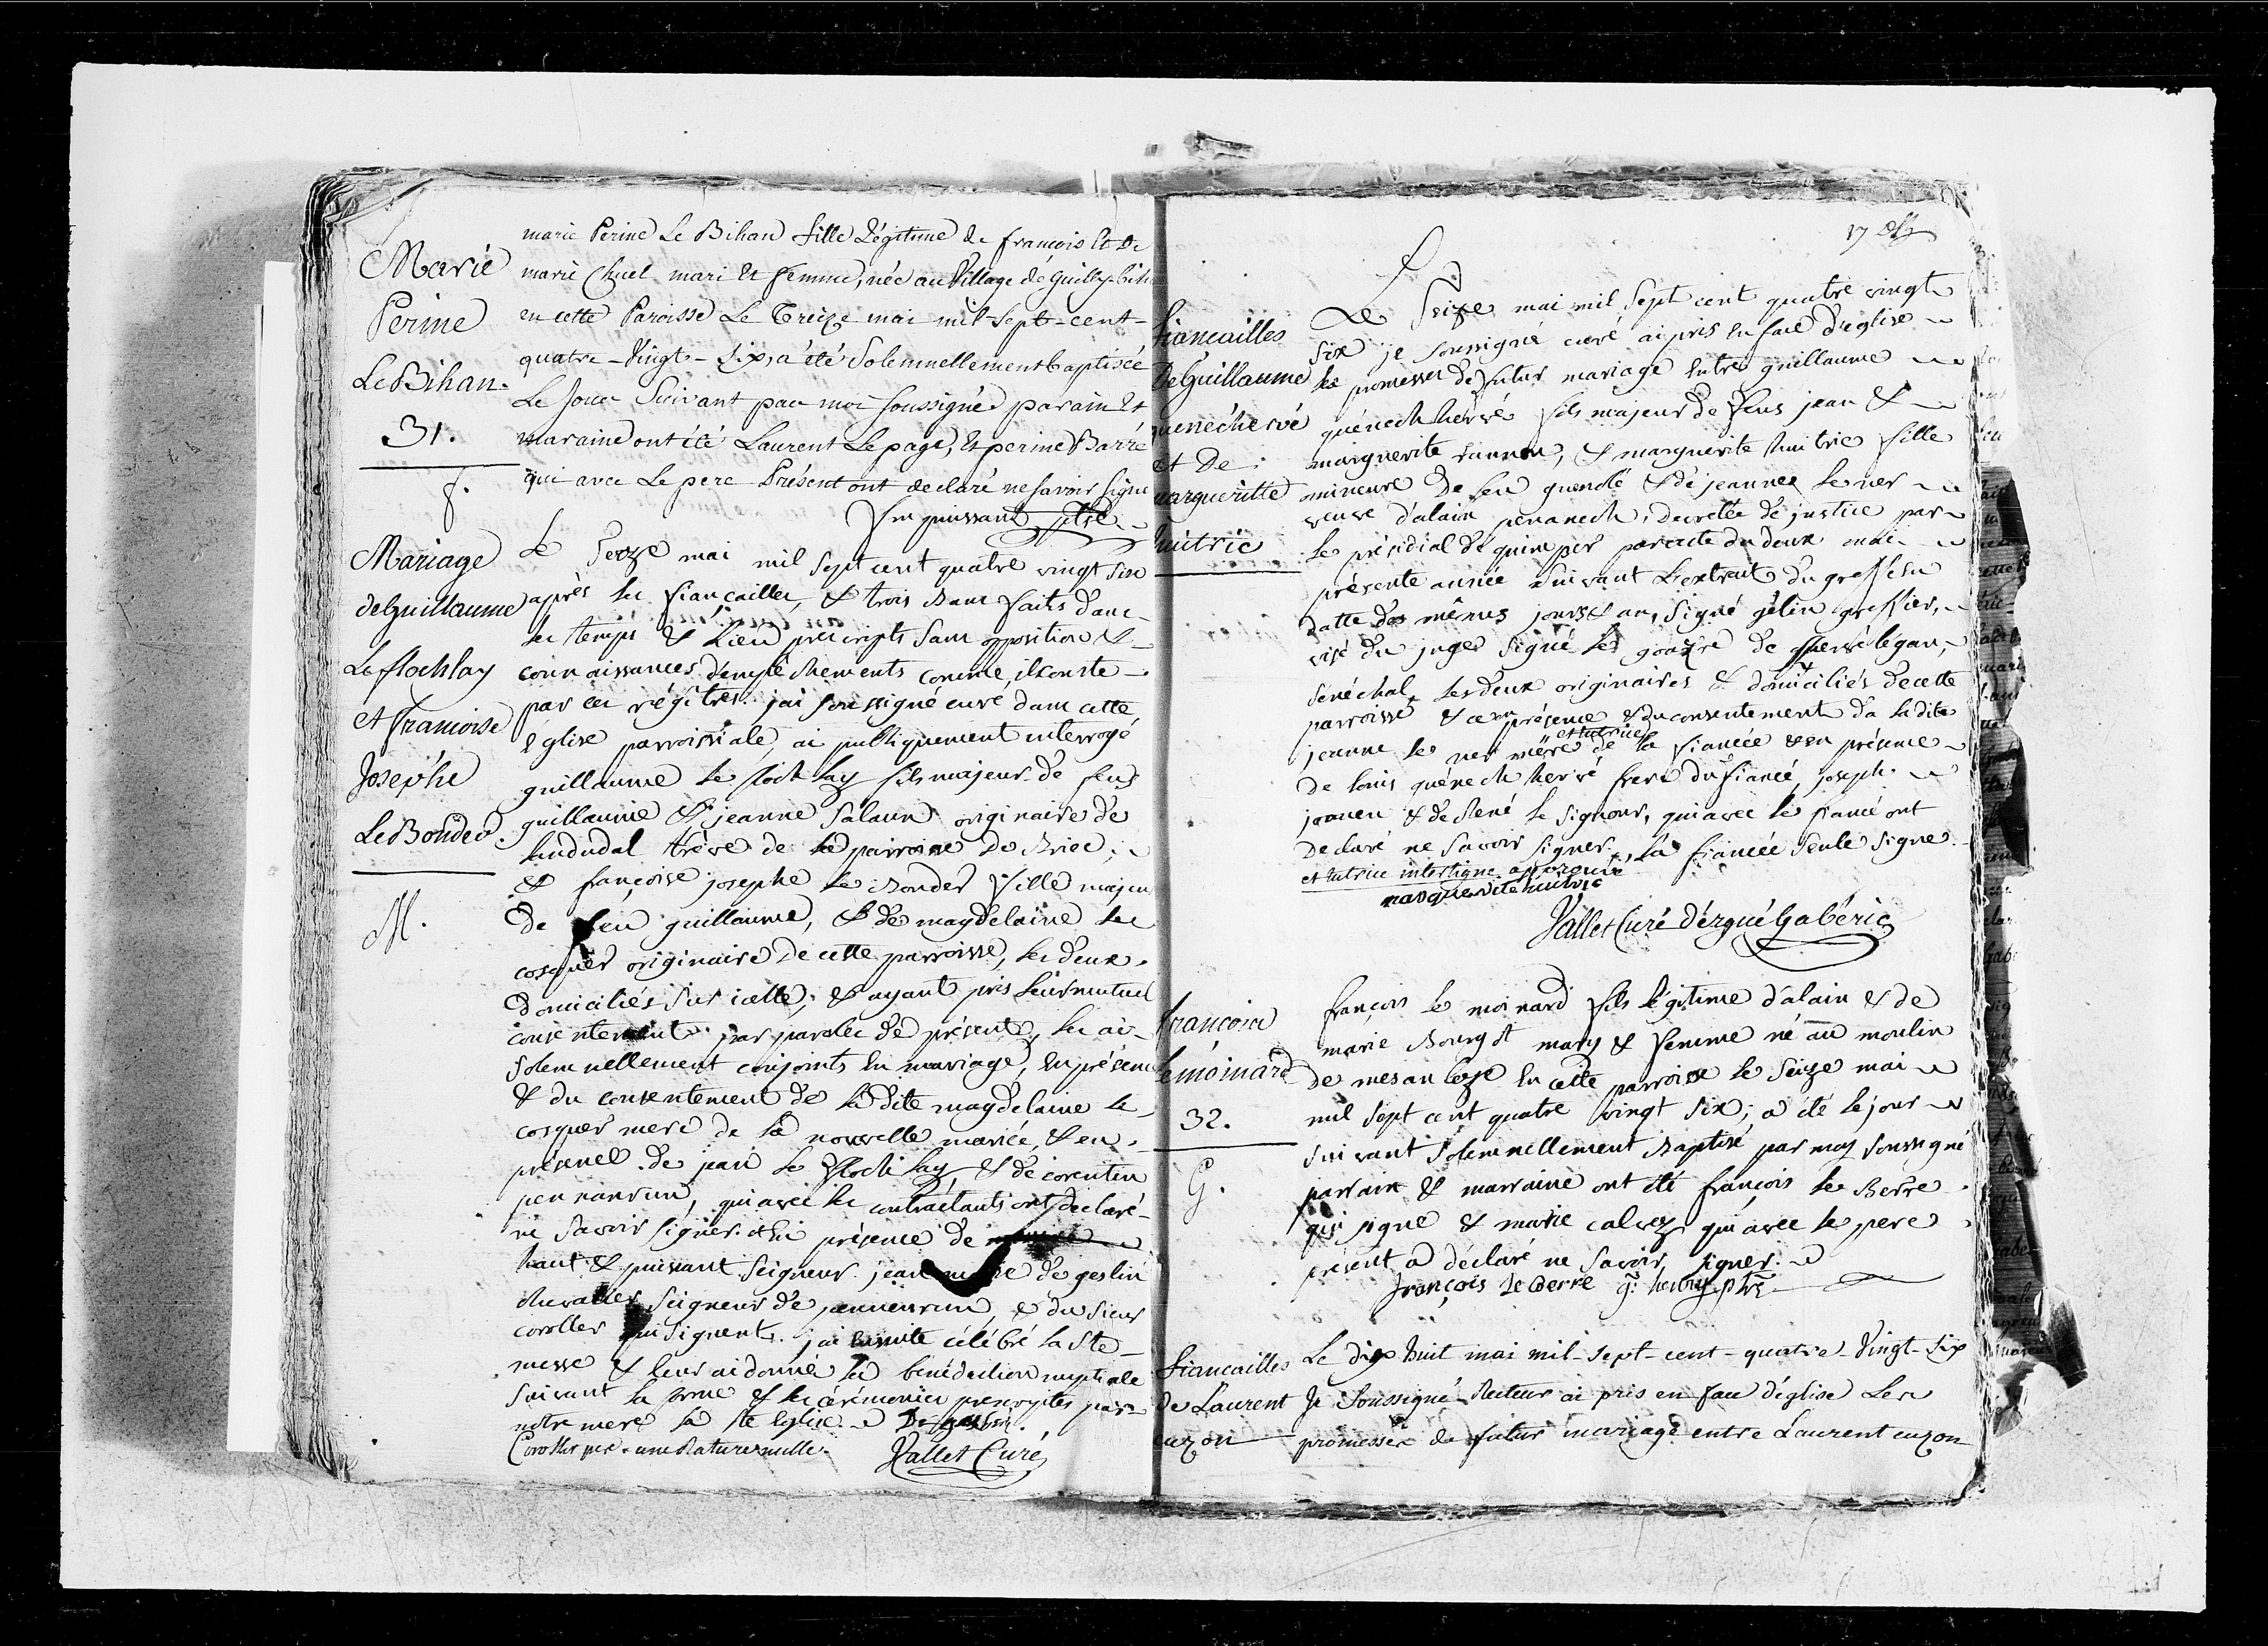 Marie
Perine
Le Bihan.
31.
f.
marie Perine Le Bihan fille Légitime de françois Et De
marie Chuel mari Et femme, née au Village de Guilly-bih
en cette Paroisse Le Treize mai mil-sept-cent-
quatre-Vingt-Six, a été Solemnellement baptisée
Le Jour Suivant par moi soussigné parain Et
maraine ont été Laurent Le page, Et perine Barré
qui avec Le pere Présent ont declaré ne savoir signe
puissant ptre
Mariage
de Guillaume
Le flochlay
et francoise
Josephe
Le Bonder.
M.
Le Seize mai mil sept cent quatre vingt six
après les fiancailles, & trois bans faits dans
les temps & Lieu prescripts sans opposition &
connaissances d'empêchements comme il conste
par les régîtres. j'ai soussigné curé dans cette
église parroissiale, ai publiquement interrogé
guillaume le floch lay fils majeur de feus
guillaume & jeanne Salaun originaire de
landudal trève de la parroisse de Briec,
& françoise josephe le Bonder fille majeu
De feu guillaume, & de magdelaine le
cosquer originaire de cette parroisse, les deux
Domiciliés sur icelle; & ayant pris leur mutuel
consentement par paroles de présent, les ai
solemnellement conjoints en mariage, en présen
& du consentement de la dite magdelaine le
cosquer mere de la nouvelle mariée, & en
présence de jean le floch lay, & de corentin
pennanrun, qui avec les contractants ont déclaré
ne savoir signer. & en présence de
haut & puissant seigneur jean marie de geslin
chevalier seigneur de pennenrun, & du sieur
coroller qui signent. j'ai ensuite célébré la Ste
messe & leur ai donné la bénédiction nuptiale
suivant la forme & les cérémonies prescriptes par
notre mere la Ste église. De geslin.
Coroller une Rature nulle.
Vallet Curé
17
fiancailles
De Guillaume
quenéchervé
et De
marguerite
nitric
Le Seize mai mil sept cent quatre vingt
six je soussigné curé ai pris en face d'église
les promesses de futur mariage entre guillaume
quénech hervé fils majeur de feus jean &
marguerite , & marguerite fille
mineure de feu & de jeanne le ner
veuve d'alain penanech; decretée de justice par
le présidial de quimper par acte du deux mai
présente année suivant L'extrait du greffe en
datte des mêmes jours & an, signé gélin greffier,
visé du juge signé le goazre de kervélégan,
sénéchal, les deux originaires & domiciliés de cette
parroisse & ce en présence & du consentement de la dite
et tutrice
jeanne le ner mère de la fiancée & en présence
de louis quénech hervé frere du fiancé, joseph
jaouen & de René le signour, qui avec le fiancé ont
Declaré ne savoir signer. La fiancée seule signe.
et tutrice interligne approuvé
marguerite
Vallet Curé d'érgué Gabéric
françois
le moinard
32.
G.
françois le moinard fils légitime d'alain & de
marie Bourgot mary & femme né au moulin
de mesanlez en cette parroisse le seize mai
mil sept cent quatre vingt six, a été le jour
suivant solemnellement Baptisé par moy soussigné
parrain & marraine ont été françois le Berre
qui signe & marie calvez qui avec le pere
présent a déclaré ne savoir signer.
françois le berre g. ptre
fiancailles
de Laurent
cuzon
Le dix huit mai mil-sept-cent-quatre-Vingt-six
Je Soussigné Recteur ai pris en face d'église Les
promesses de futur mariage entre Laurent cuzon